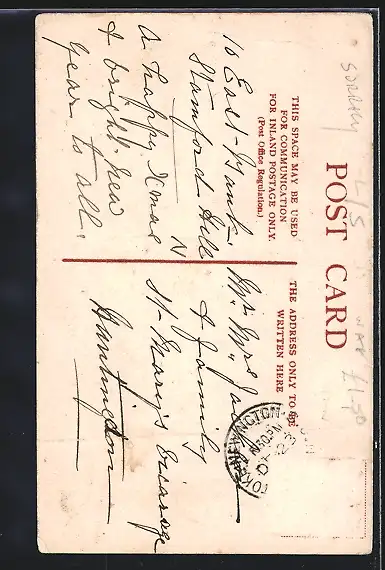 POST CARD
THIS SPACE MAY BE USED
FOR COMMUNICATION
FOR INLAND POSTAGE ONLY.
(Post Office Regulation.)
16 East-Bank.
Stamford Hill
N
A happy Xmas
& bright new
year to all.
THE ADDRESS ONLY TO BE
WRITTEN HERE
Mr. Mrs.
& family
St. Mary's Vicarage
Huntingdon
STOKE NEWINGTON
SURREY
£1.50